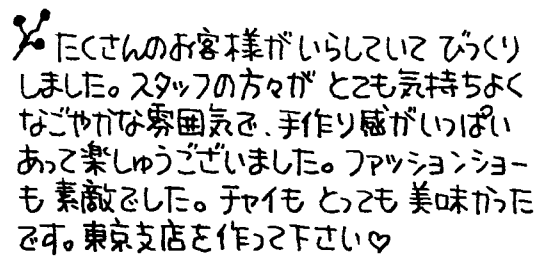 たくさんのお客様がいらしていて びっくり
しました。スタッフの方々が とても気持ちよく
なごやかな雰囲気で、手作り感がいっぱい
あって楽しゅうございました。ファッションショー
も 素敵でした。チャイも とっても 美味かった
です。東京支店を作って下さい♡